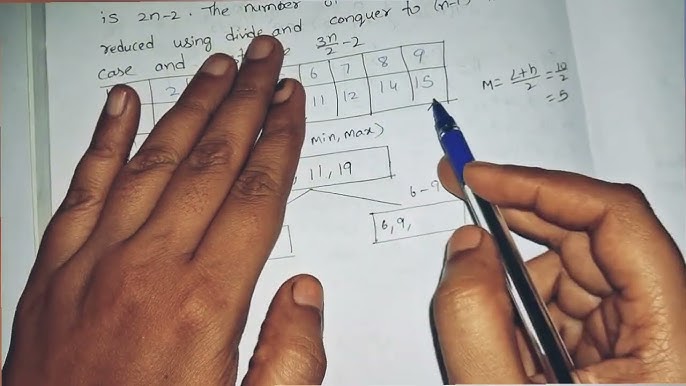 is 2n-2. The number
reduced using divide and conquer to (n-1)
case and 3n/2 - 2
2 6 7 8 9
11 12 14 15
M = L+h/2 = 10/2
= 5
min, max)
, 11, 19
6-9
6, 9,